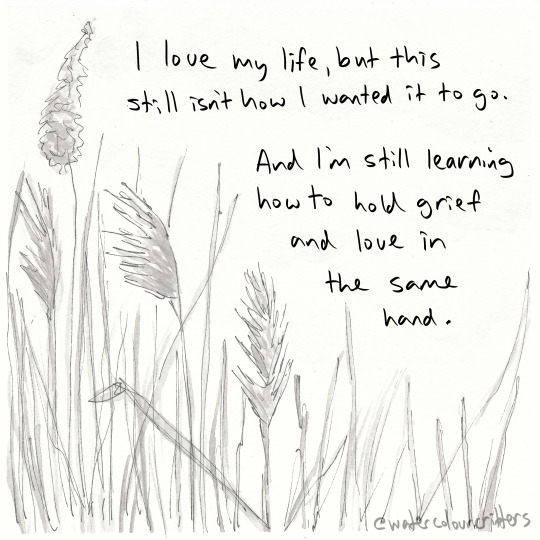 I love my life, but this
still isn't how I wanted it to go.
And I'm still learning
how to hold grief
and love in
the same
hand.
@watercolourcritters